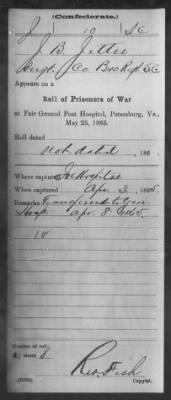 (Confederate.)
J 10 S C
J. B. Jeter
Sergt, Co. B 10 Regt S.C.
Appears on a
Roll of Prisoners of War
at Fair Ground Post Hospital, Petersburg, Va.,
May 25, 1865.
Roll dated
Not dated, 186
Where captured In Hospital
When captured Apr 3, 1865
Remarks Transferred to Gen
Hosp. Apr. 8 1865.
Number of roll:
4; sheet
Geo. Fish
Copyist.